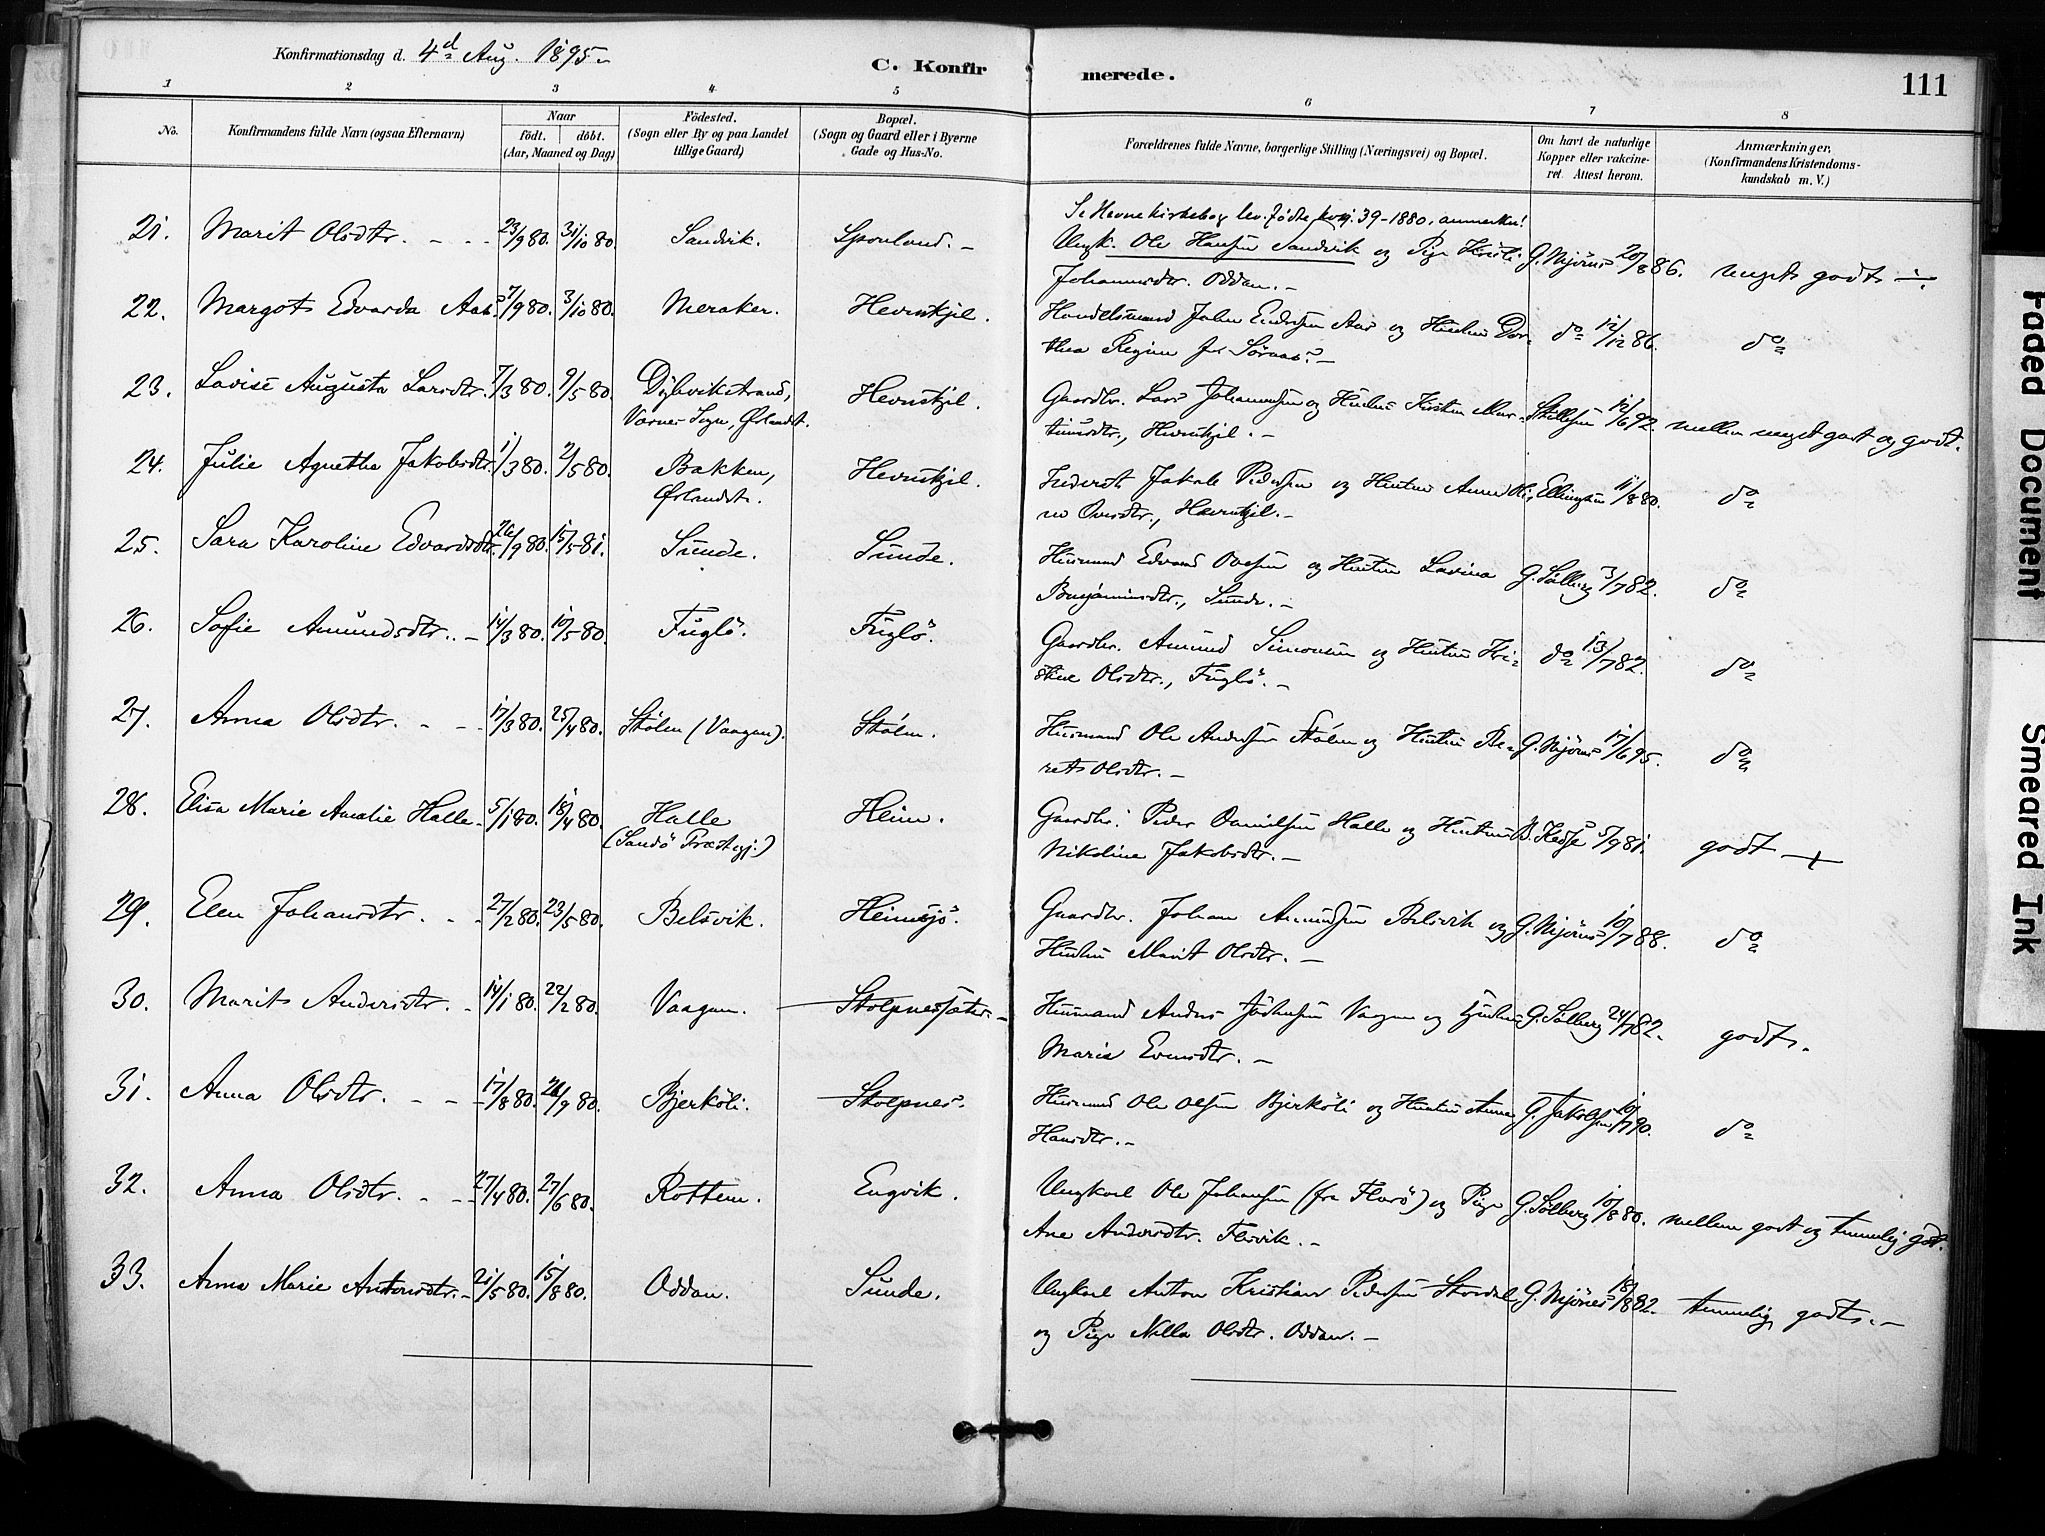 Konfirmationsdag d. 4d Aug. 1895.
C. Konfirmerede.
111
1 2 3 4 5 6 7 8
No.
Konfirmandens fulde Navn (ogsaa Efternavn)
Naar
født. døbt.
(Aar, Maaned og Dag)
Fødested.
(Sogn eller By og paa Landet
tillige Gaard)
Bopæl.
(Sogn og Gaard eller i Byerne
Gade og Hus-No.
Forældrenes fulde Navne, borgerlige Stilling (Næringsvei) og Bopæl.
Om havt de naturlige
Kopper eller vakcine-
ret. Attest herom.
Anmærkninger.
(Konfirmandens Kristendoms-
kundskab m. V.)
Se Hevne kirkebog lev. fødte kvkj. 39-1880. anmerkn!
21. Marit Olsdtr. 23/9 80. 31/10 80 Sandvik. Ungk. Ole Hansen Sandvik og Pige Kristi G. Mjønes 20/8 86. meget godt
Johannesdtr. Oddan.
22. Margot Edvarda Aas. 7/9 80. 3/10 80. Meraker. Hevnskjel. Handelsmand John Aas og Hustru Dor- do 12/12 86. do
thea Regine
23. Lovise Augusta Larsdtr. 7/3 80. 9/5 80. Dybvikstrand, Hevnskjel. Gaardbr. Lars Johannesen og Hustru Kirsten Mar- 12/6 92. mellem meget godt og godt.
Sogn, Ørlandet. tinusdtr., Hevnskjel.
24. Julie Agnetha Jakobsdtr. 1/3 80. 2/5 80. Bakken, Hevnskjel. Inderst Jakob Pedersen og Hustru Anna Ellingsen 11/8 80. do
Ørlandet. Hevnskjel.
25. Sara Karoline Edvardsdtr. 26/9 80. 15/5 81. Sunde. Sunde. Husmand Edvard Ovesen og Hustru Lavina G. Solberg 3/7 82. do
Benjaminsdtr., Sunde.
26. Sofie Amundsdtr. 14/3 80. 16/5 80. Fuglø. Fuglø. Gaardbr. Amund Simonsen og Hustru Kri- do 13/7 82. do
stine Olsdtr., Fuglø.
27. Anna Olsdtr. 17/3 80. 25/4 80. Stølen (Vaagan). Stølen. Husmand Ole Andersen Stølen og Hustru Be- G. Mjønes 17/6 95. do
ret Olsdtr.
28. Elisa Marie Amalie Halle 5/1 80. 18/4 80. Halle Heim. Gaardbr. Peder Danielsen Halle og Hustru 5/9 81. godt
(Sandø Præstegj.) Nikoline Jakobsdtr.
29. Elen Johansdtr. 27/2 80. 23/5 80. Belsvik. Heimsjø. Gaardbr. Johan Amundsen Belsvik og G. Mjønes 10/7 88. do
Hustru Marit Olsdtr.
30. Marit Andersdtr. 14/1 80. 22/2 80. Vaagan. Stolpnessæter. Husmand Anders Vaagan og Hustru G. Solberg 24/7 82. godt.
Marie
31. Anna Olsdtr. 17/8 80. 26/9 80. Bjerkøli. Stolpnes. Husmand Ole Olsen Bjerkøli og Hustru Anne G. Jakobsen 10/7 90. do
Hansdtr.
32. Anna Olsdtr. 27/4 80. 27/6 80. Rottem. Engvik. Ungkarl Ole Johansen (fra Florø) og Pige G. Solberg 10/8 80. mellem godt og temmelig godt.
Ane Andersdtr.
33. Anna Marie Antonsdtr. 21/5 80. 15/8 80. Oddan. Sunde. Ungkarl Anton Kristian Pedersen G. Mjønes 18/8 82. temmelig godt.
og Pige Nella Olsdtr. Oddan.
Faded Document
Smeared Ink